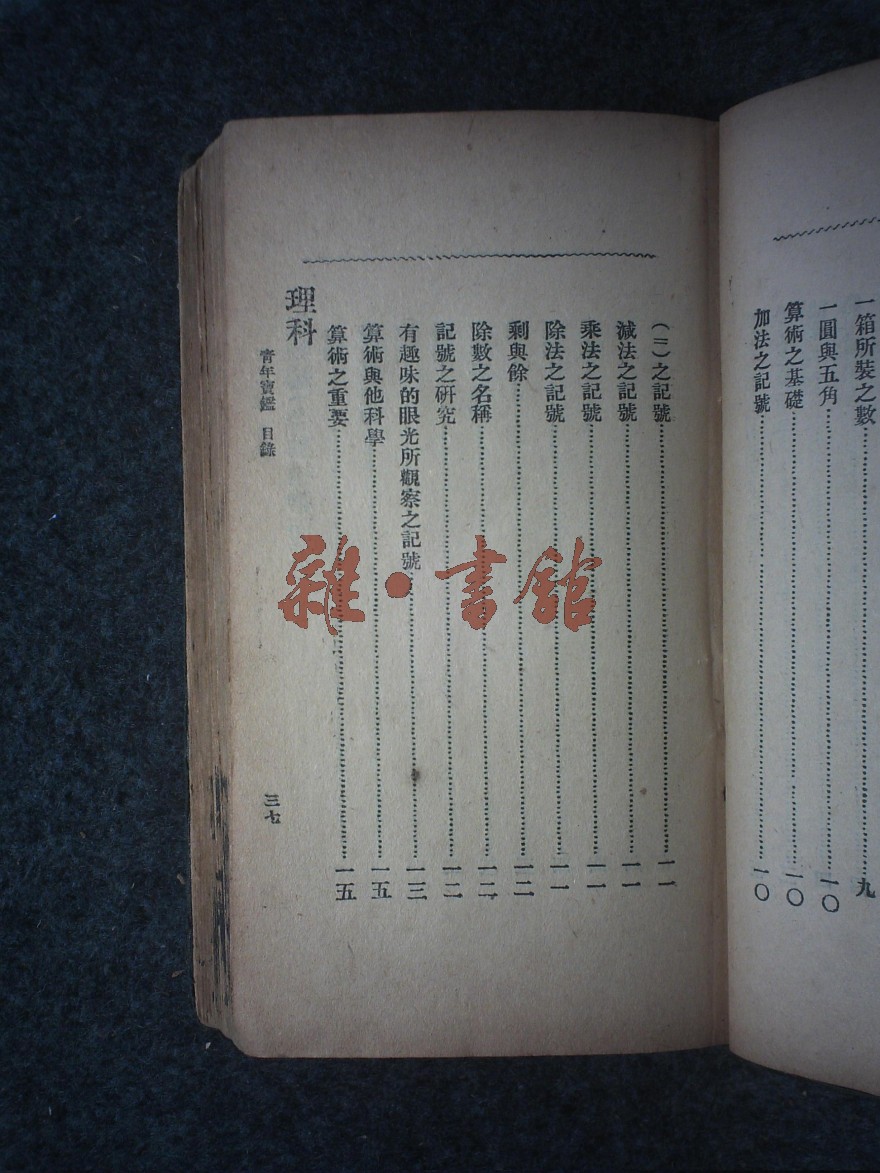 一箱所裝之數……九
一圓與五角……一〇
算術之基礎……一〇
加法之記號……一〇
(二)之記號……一一
減法之記號……一一
乘法之記號……一一
除法之記號……一一
剩與餘……一二
除數之名稱……一二
記號之研究……一二
有趣味的眼光所觀察之記號……一三
算術與他科學……一五
算術之重要……一五
理科
青年寶鑑 目錄
三七
雜·書館